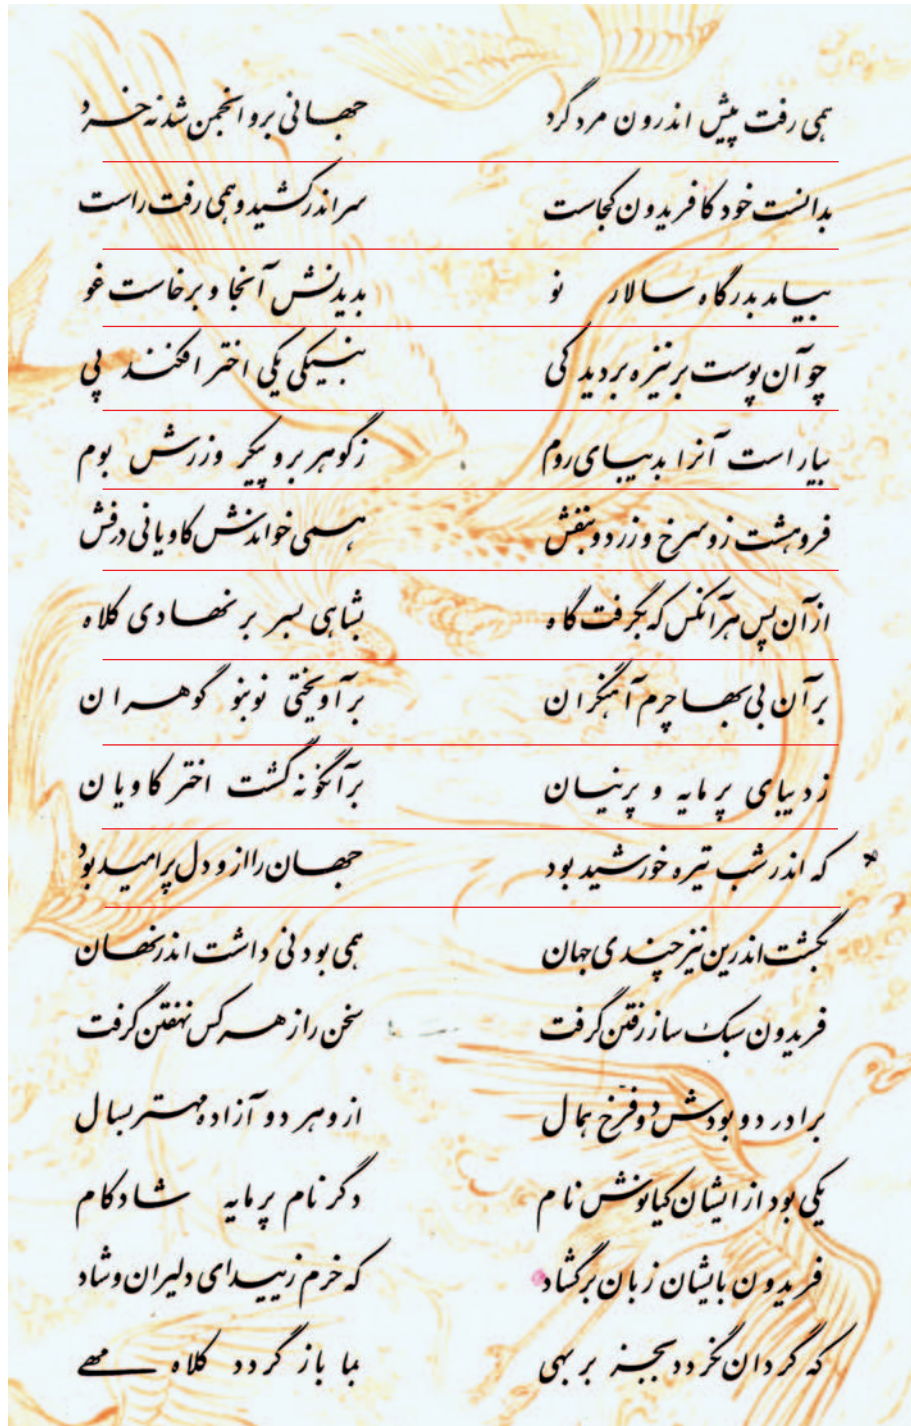 همی رفت پیش اندرون مرد گرد جهانی برو انجمن شد نه خرد
بدانست خود کافریدون کجاست سراندر کشید و همی رفت راست
بیامد بدرگاه سالار نو بدیدنش آنجا و برخاست غو
چو آن پوست بر نیزه بر دید کی بنیکی یکی اختر افکند پی
بیاراست آنرا بدیبای روم ز گوهر برو پیکر و زرش بوم
فروهشت زو سرخ و زرد و بنفش همی خواندش کاویانی درفش
از آن پس هرآنکس که بگرفت گاه بشاهی بسر بر نهادی کلاه
بر آن بی بها چرم آهنگران برآویختی نو بنو گوهران
ز دیبای پرمایه و پرنیان برآنگونه گشت اختر کاویان
که اندر شب تیره خورشید بود جهان را ازو دل پرامید بود
بگشت اندرین نیز چندی جهان همی بودنی داشت اندر نهان
فریدون سبک ساز رفتن گرفت سخن را ز هر کس نهفتن گرفت
برادر دو بودش دو فرخ همال ازو هر دو آزاده مهتر بسال
یکی بود از ایشان کیانوش نام دگر نام پرمایه شادکام
فریدون بایشان زبان برگشاد که خرم زیید ای دلیران و شاد
که گردان نگردد بجز بر بهی بما باز گردد کلاه مهی